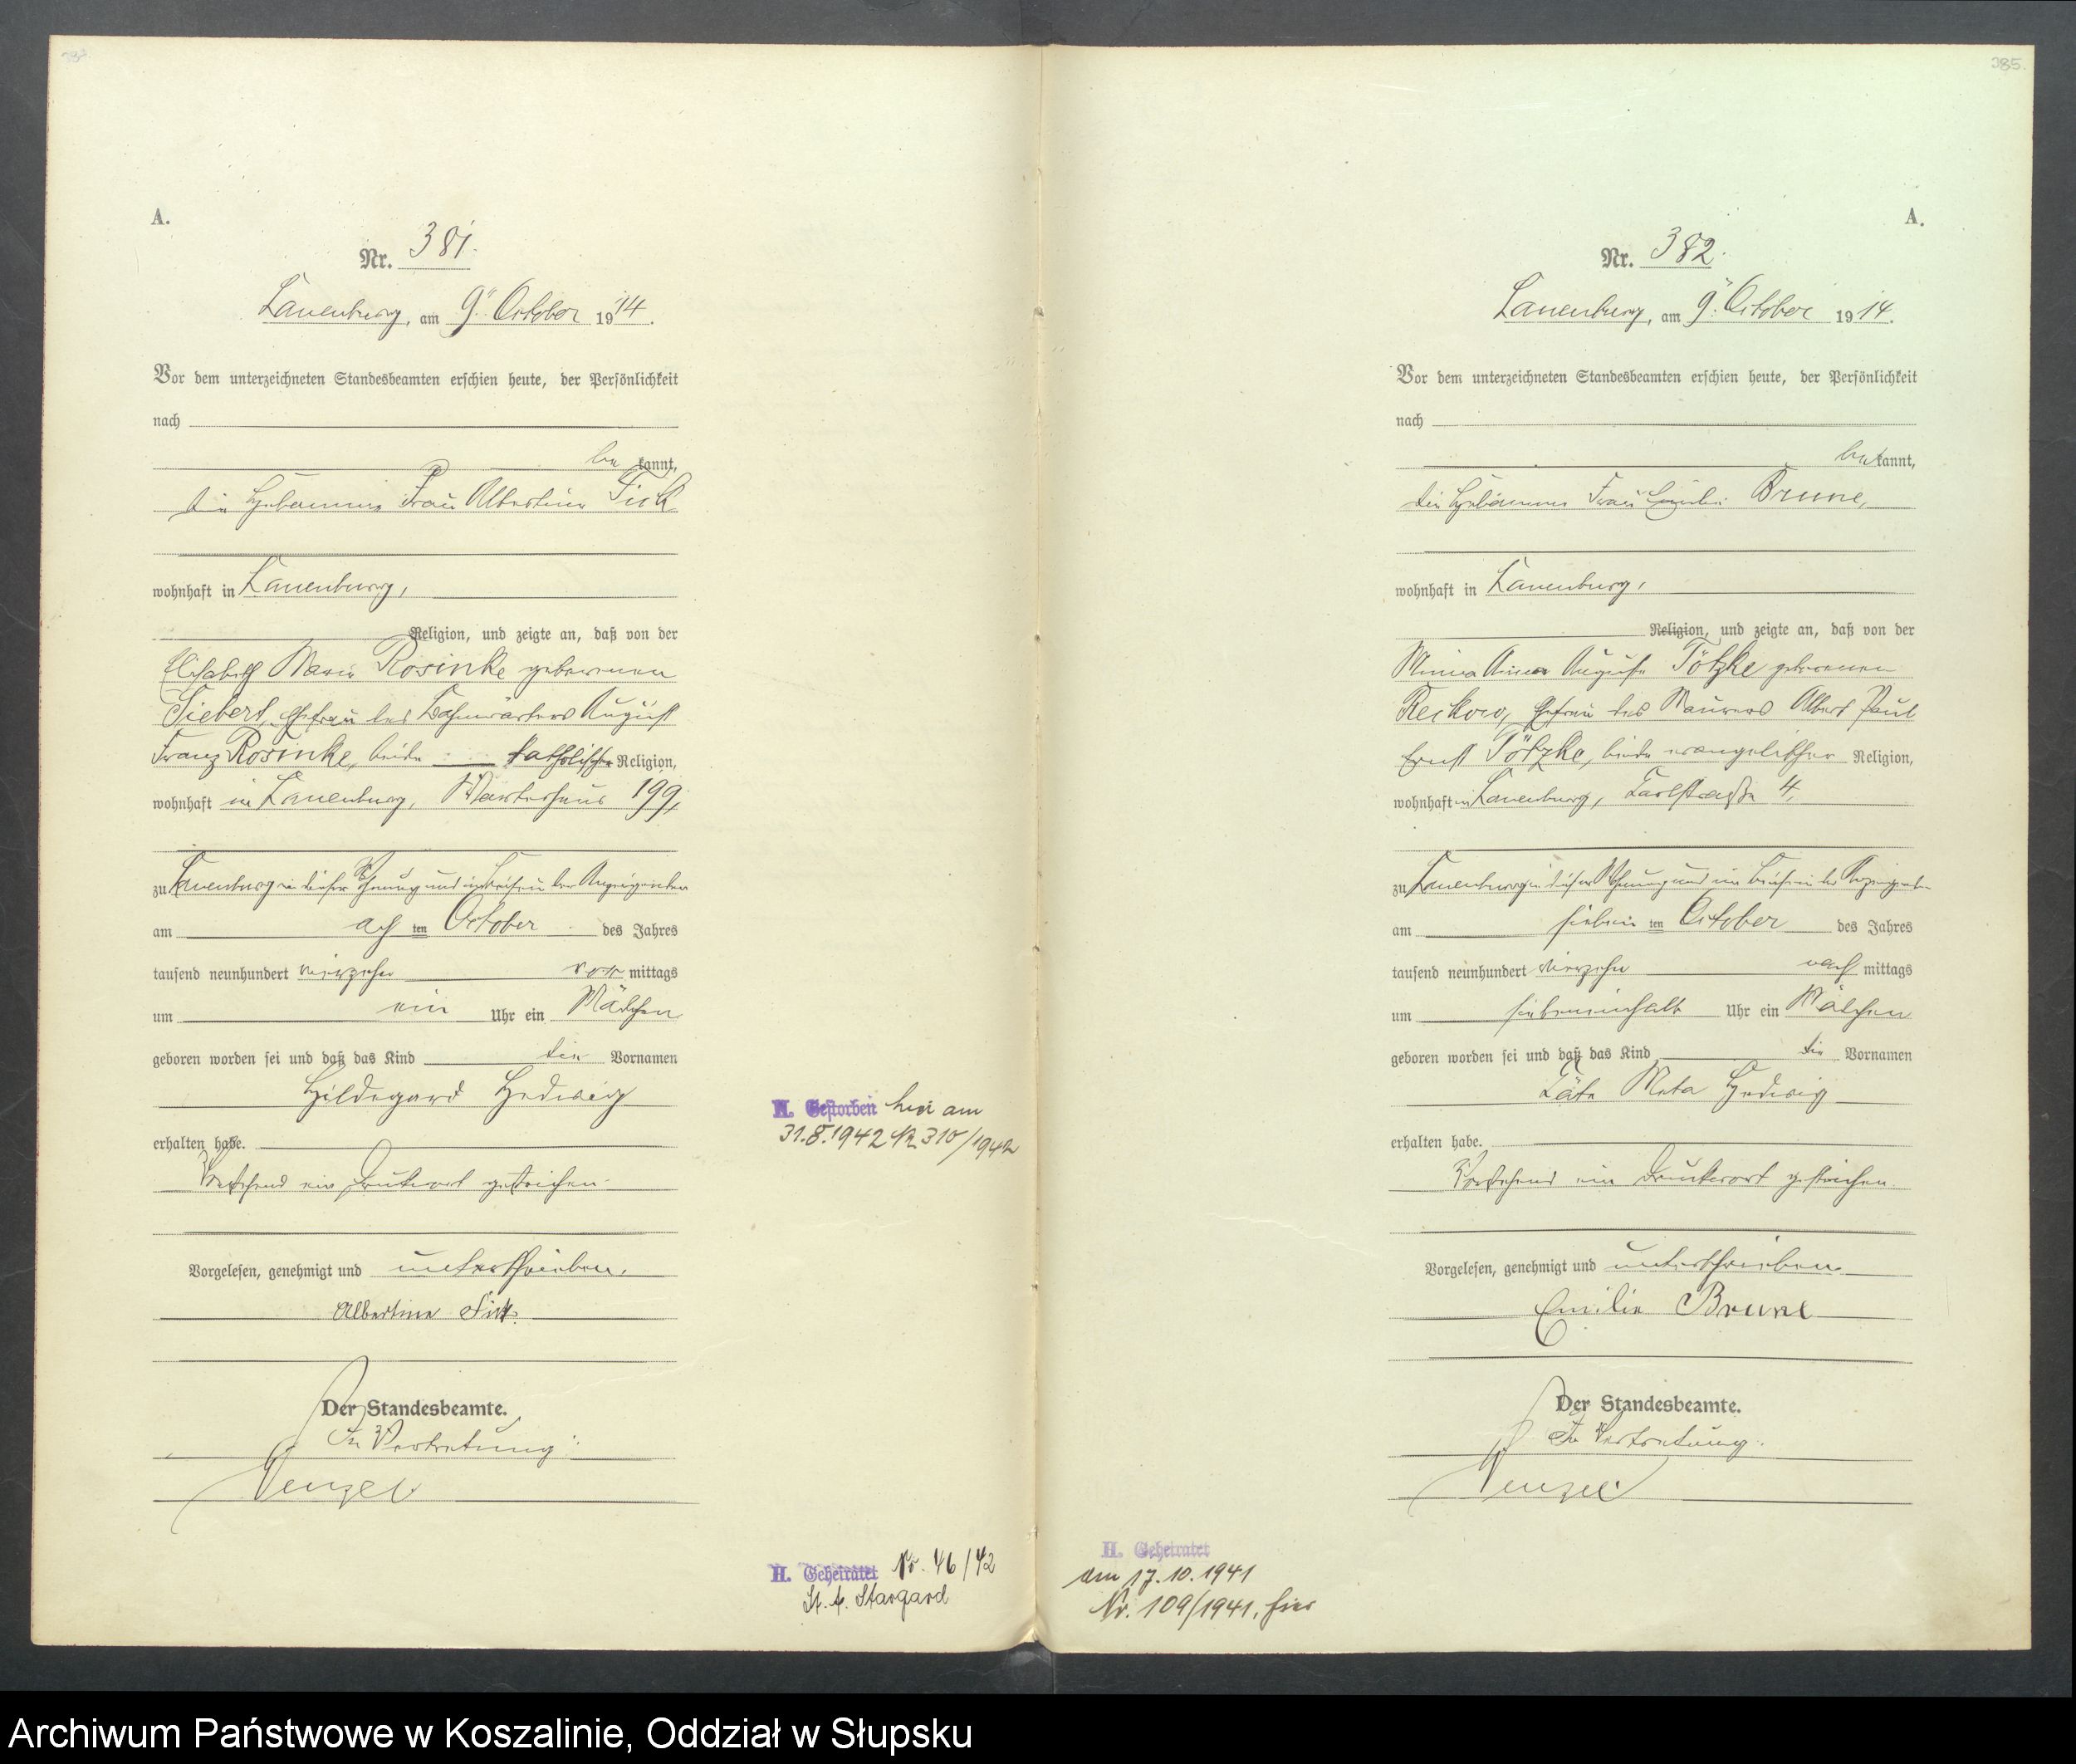 A.
Nr. 381.
Lauenburg, am 9. October 1914.
Vor dem unterzeichneten Standesbeamten erschien heute, der Persönlichkeit
nach
be kannt,
die Hebamme Frau Albertine Fick
wohnhaft in Lauenburg,
Religion, und zeigte an, daß von der
Elisabeth Marie Rosinke geborenen
Siebert, Ehefrau des Bahnwärters August
Franz Rosinke, beide katholischer Religion,
wohnhaft in Lauenburg, Wärterhaus 199,
zu Lauenburg in dieser Wohnung und in Beisein der Anzeigenden
am ach ten October des Jahres
tausend neunhundert vierzehn vor mittags
um ein Uhr ein Mädchen
geboren worden sei und daß das Kind die Vornamen
Hildegard Hedwig
erhalten habe.
Vorstehend ein Druckwort gestrichen.
Vorgelesen, genehmigt und unterschrieben.
Albertine Fick.
Der Standesbeamte.
In Vertretung:
Wenzel
II. Gestorben hier am
31.8.1942 Nr 310/1942
II. Geheiratet Nr. 46/42
St. A. Stargard
385.
A.
Nr. 382.
Lauenburg, am 9. October 1914.
Vor dem unterzeichneten Standesbeamten erschien heute, der Persönlichkeit
nach
be kannt,
die Hebamme Frau Emilie Brune,
wohnhaft in Lauenburg,
Religion, und zeigte an, daß von der
Minna Anna Auguste Tötzke geborenen
Reckow, Ehefrau des Maurers Albert Paul
Ernst Tötzke, beide evangelischer Religion,
wohnhaft in Lauenburg, Karlstraße 4,
zu Lauenburg in dieser Wohnung und im Beisein der Anzeigenden
am sieben ten October des Jahres
tausend neunhundert vierzehn nach mittags
um siebeneinhalb Uhr ein Mädchen
geboren worden sei und daß das Kind die Vornamen
Käte Meta Hedwig
erhalten habe.
Vorstehend ein Druckwort gestrichen.
Vorgelesen, genehmigt und unterschrieben
Emilie Brune
Der Standesbeamte.
In Vertretung.
Wenzel
II. Geheiratet
am 17.10.1941
Nr. 109/1941, hier
Archiwum Państwowe w Koszalinie, Oddział w Słupsku